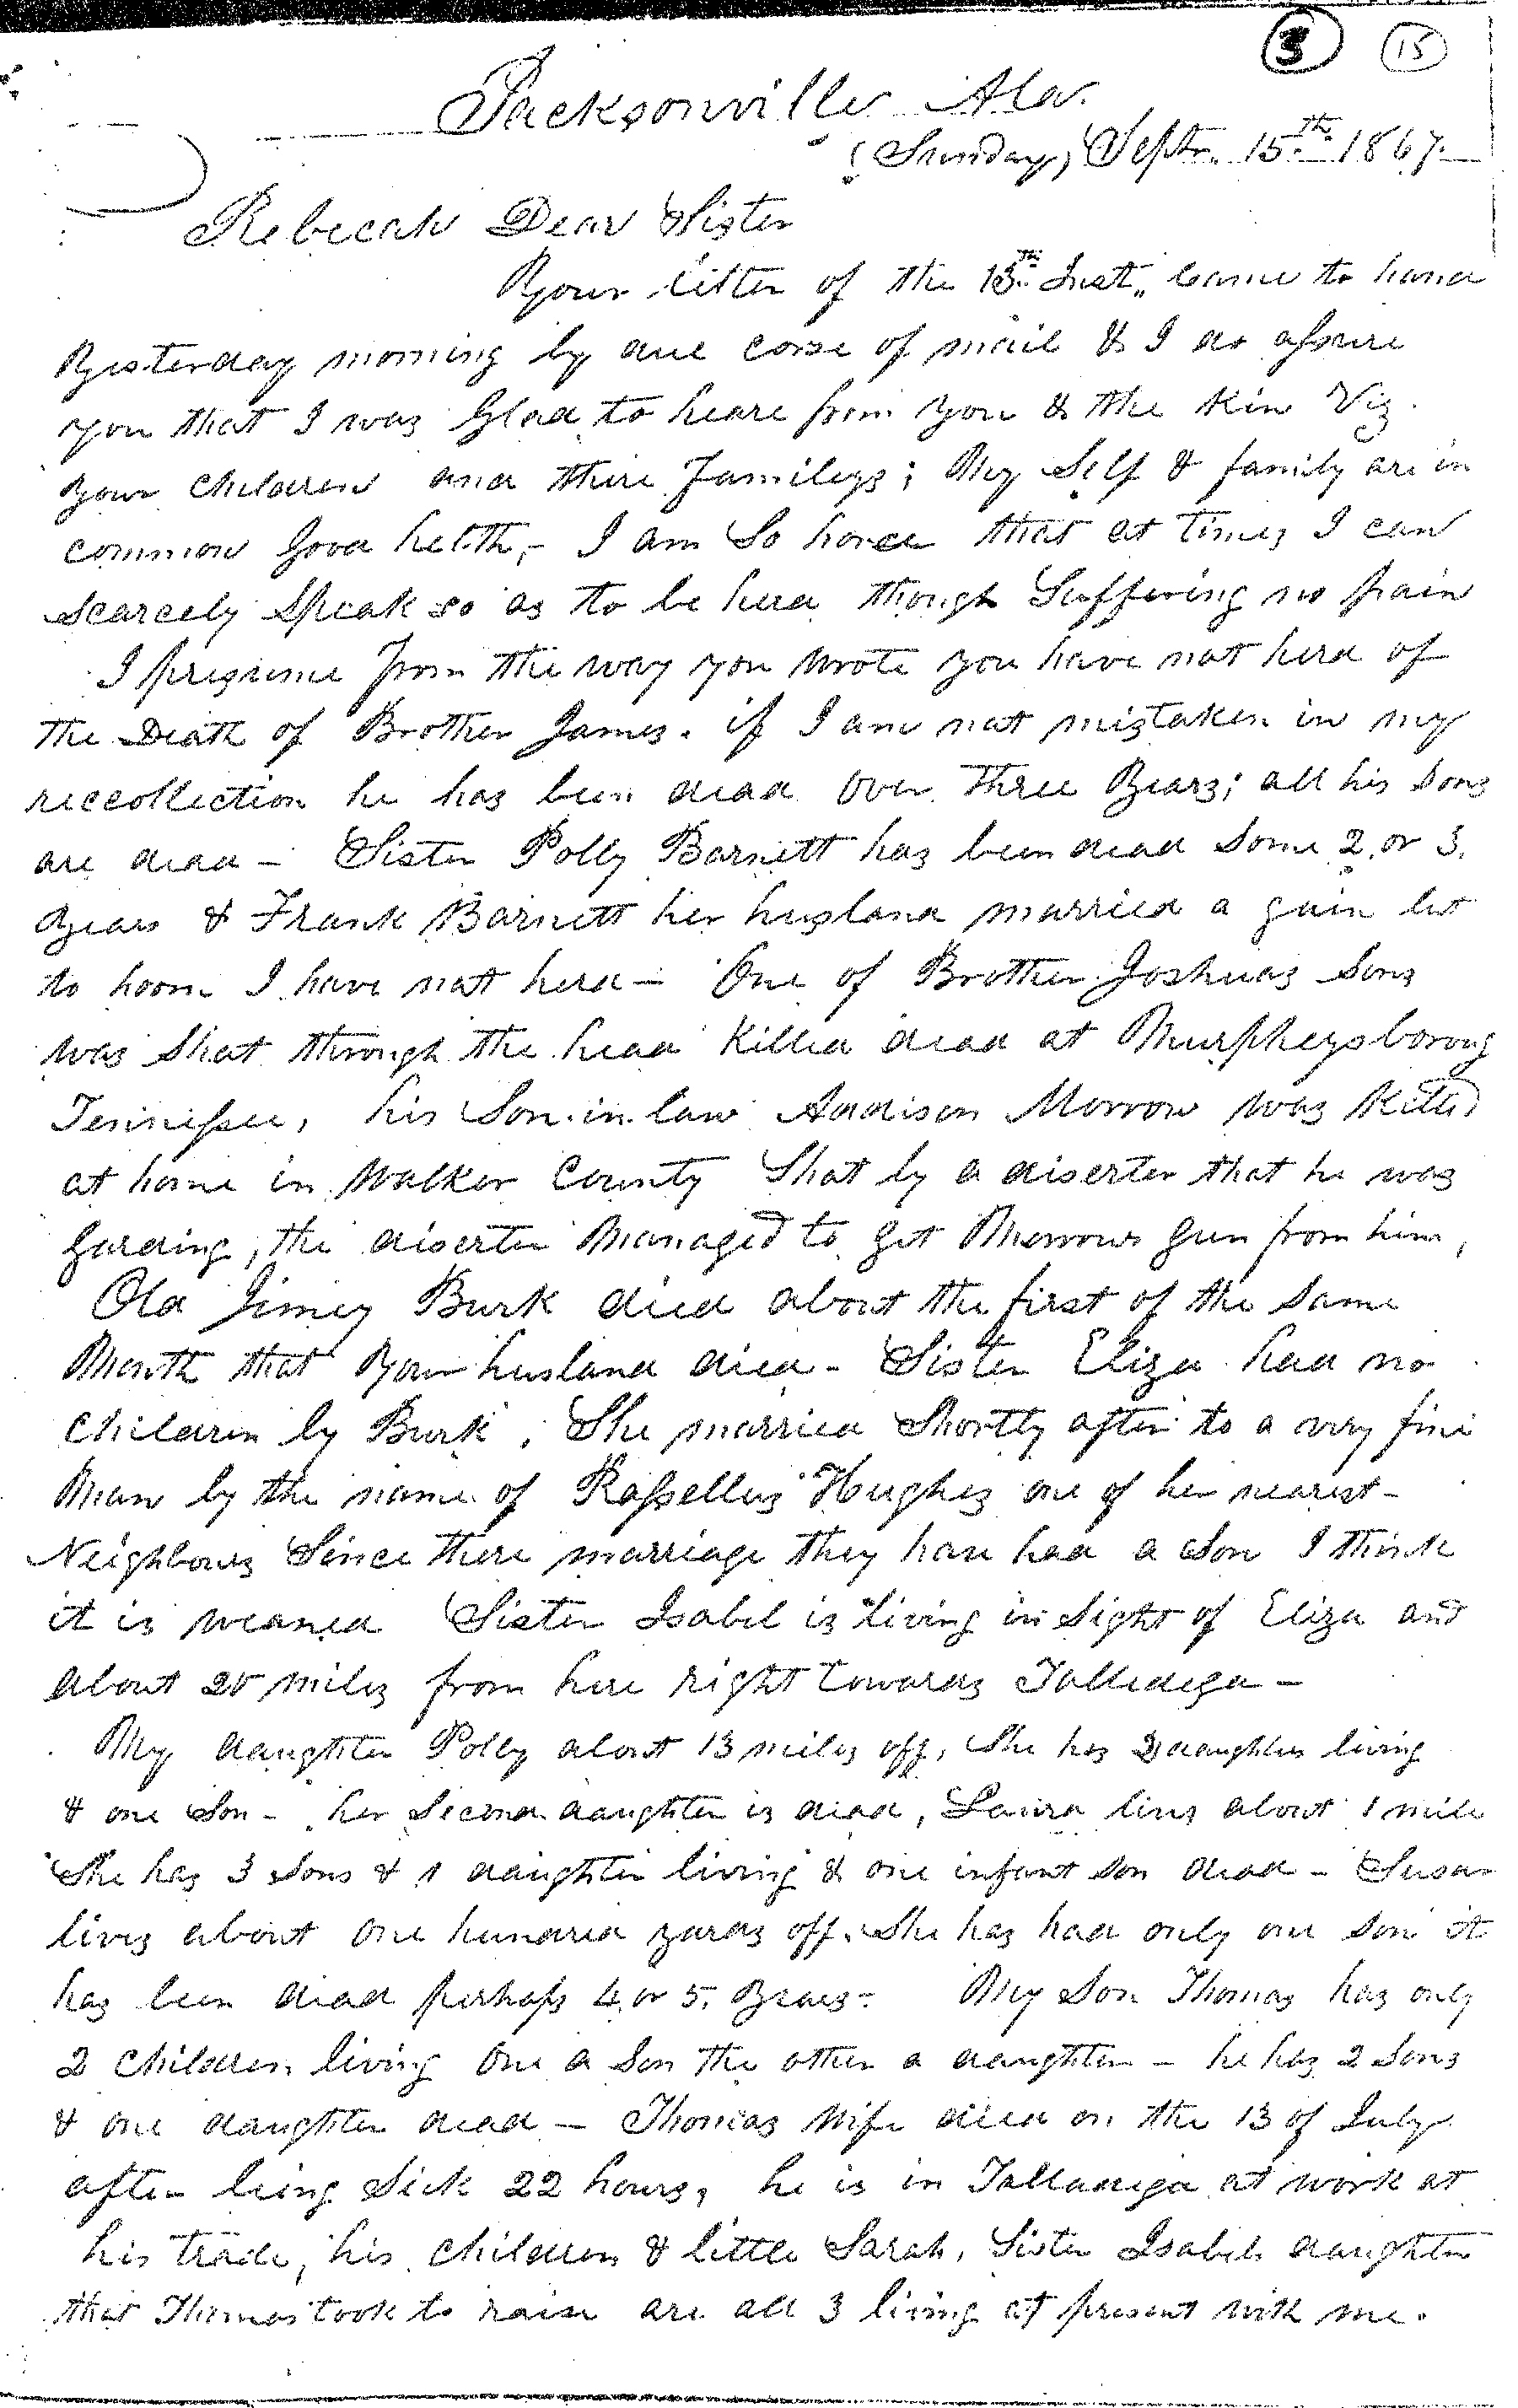 3 15
Jacksonville Ala.
(Sunday) Septr. 15th. 1867.
Rebecah Dear Sister
Your letter of the 13th. Inst,, came to hand
Yesterday morning by due corse of mail & I do assure
you that I was Glad to heare from you & the kin Viz.
your children and there Famileys; My Self & family are in
common Good helth,- I am So horce that at times I can
scarcely Speak so as to be herd though Suffering no pain
I presume from the way you wrote you have not herd of
the Death of Brother James. if I am not mistaken in my
reccollection he has been dead over three Years; all his Sons
are dead - Sister Polly Barnett has been dead Some 2. or 3.
Years & Frank Barnett her husband married a gain but
to hoom I have not herd - One of Brother Joshuas Sons
was Shot through the head Killed dead at Murpheysboroug
Tennissee, his Son.in.law Addison Morrow was Killed
at home in Walker County Shot by a diserter that he was
Garding, the diserter Managed to get Morrows Gun from him,
Old Jimey Burk died about the first of the Same
Month that Your husband died - Sister Eliza had no
Children by Burk, She married Shortly after to a very fine
Man by the name of Rossellus Hughes one of her nearest-
Neighbours Since there marriage they have had a Son I think
it is weaned Sister Isabel is living in Sight of Eliza and
about 20 miles from here right towards Talledega -
My daughter Polly about 13 miles off, She has 2 daughters living
& one Son - her Second daughter is dead, Laura lives about 1 mile
She has 3 Sons & 1 daughter living & one infant Son dead - Susan
lives about One hundred yards off. She has had only one Son it
has been dead perhaps 4. or 5. Years - My Son Thomas has only
2 Children living One a Son the other a daughter - he has 2 Sons
& one daughter dead - Thomas Wife died on the 13 of July
after being Sick 22 hours, he is in Talladega at work at
his trade, his children & little Sarah, Sister Isabels daughter
that Thomas took to raise are all 3 living at present with me.